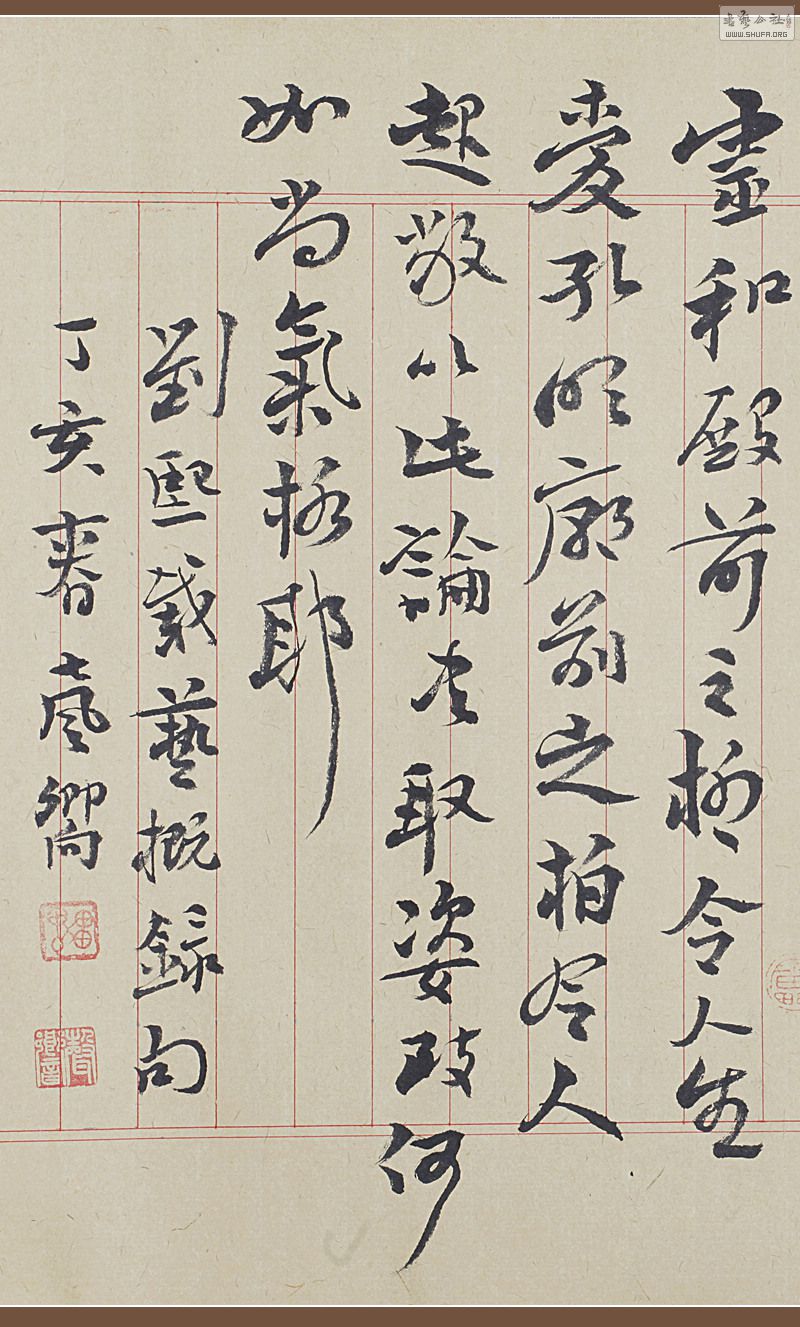 靈和殿前之柳令人生
愛孔明廟前之柏令人
起敬以此論書取姿致何
如尚氣格耶
劉熙載藝概錄句
丁亥春嚮
書藝公社
WWW.SHUFA.ORG